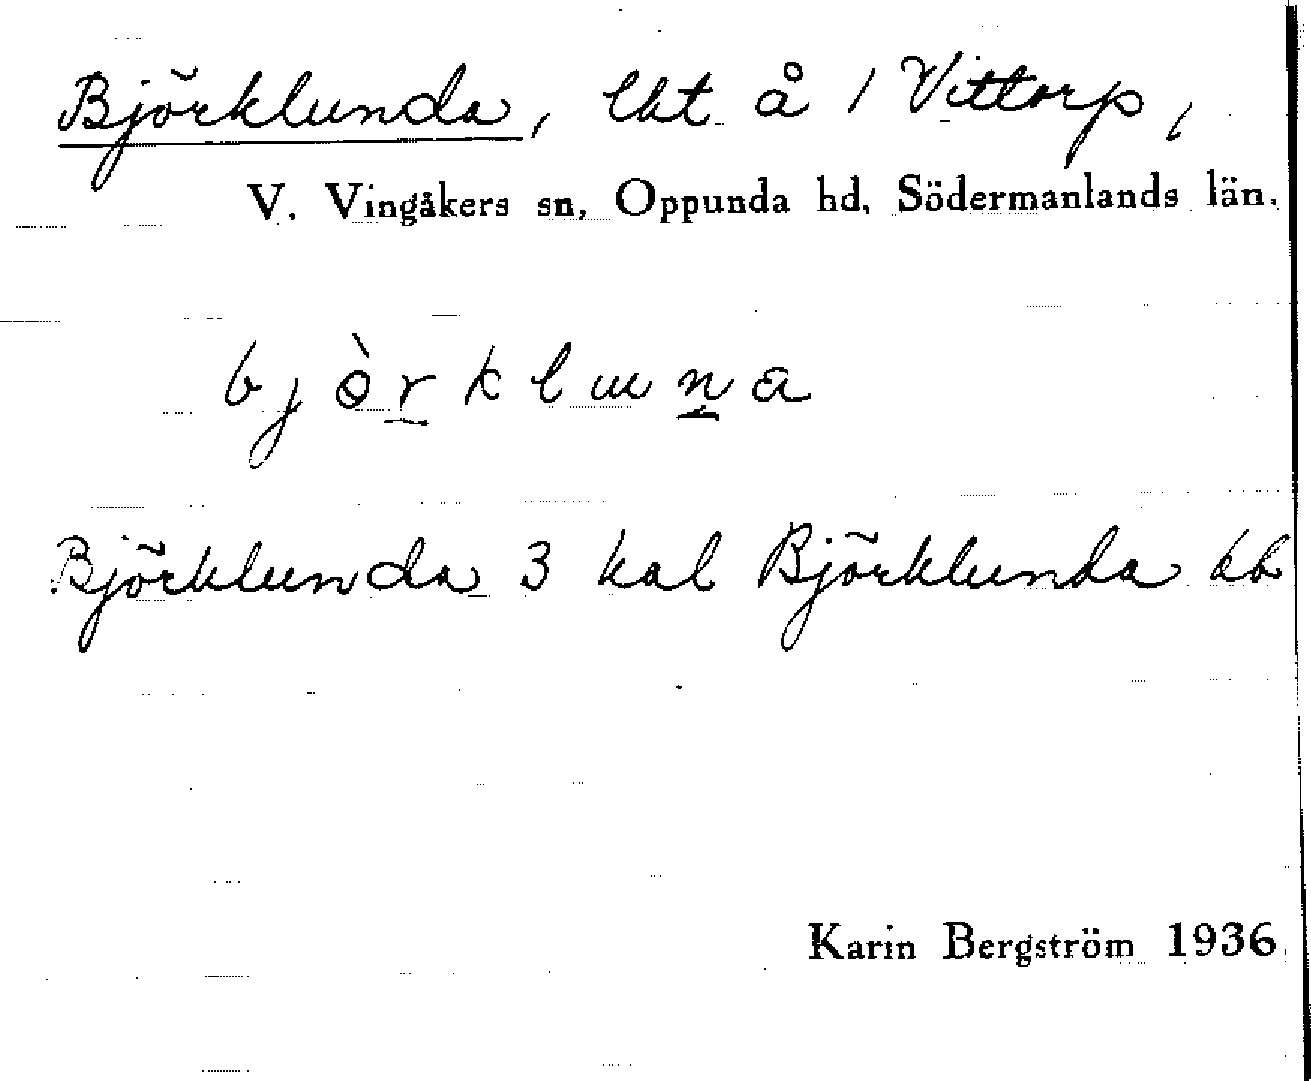 Björklunda, lht å 1 Vittorp,
V. Vingåkers sn, Oppunda hd, Södermanlands län.
bjòrkluna
Björklunda 3 kal Björklunda bb
Karin Bergström 1936